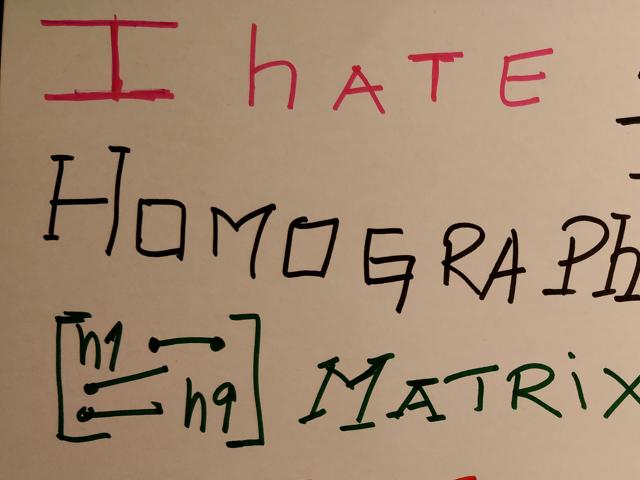 I hATE
HOMOGRAPh
[h1 h9] MATRiX